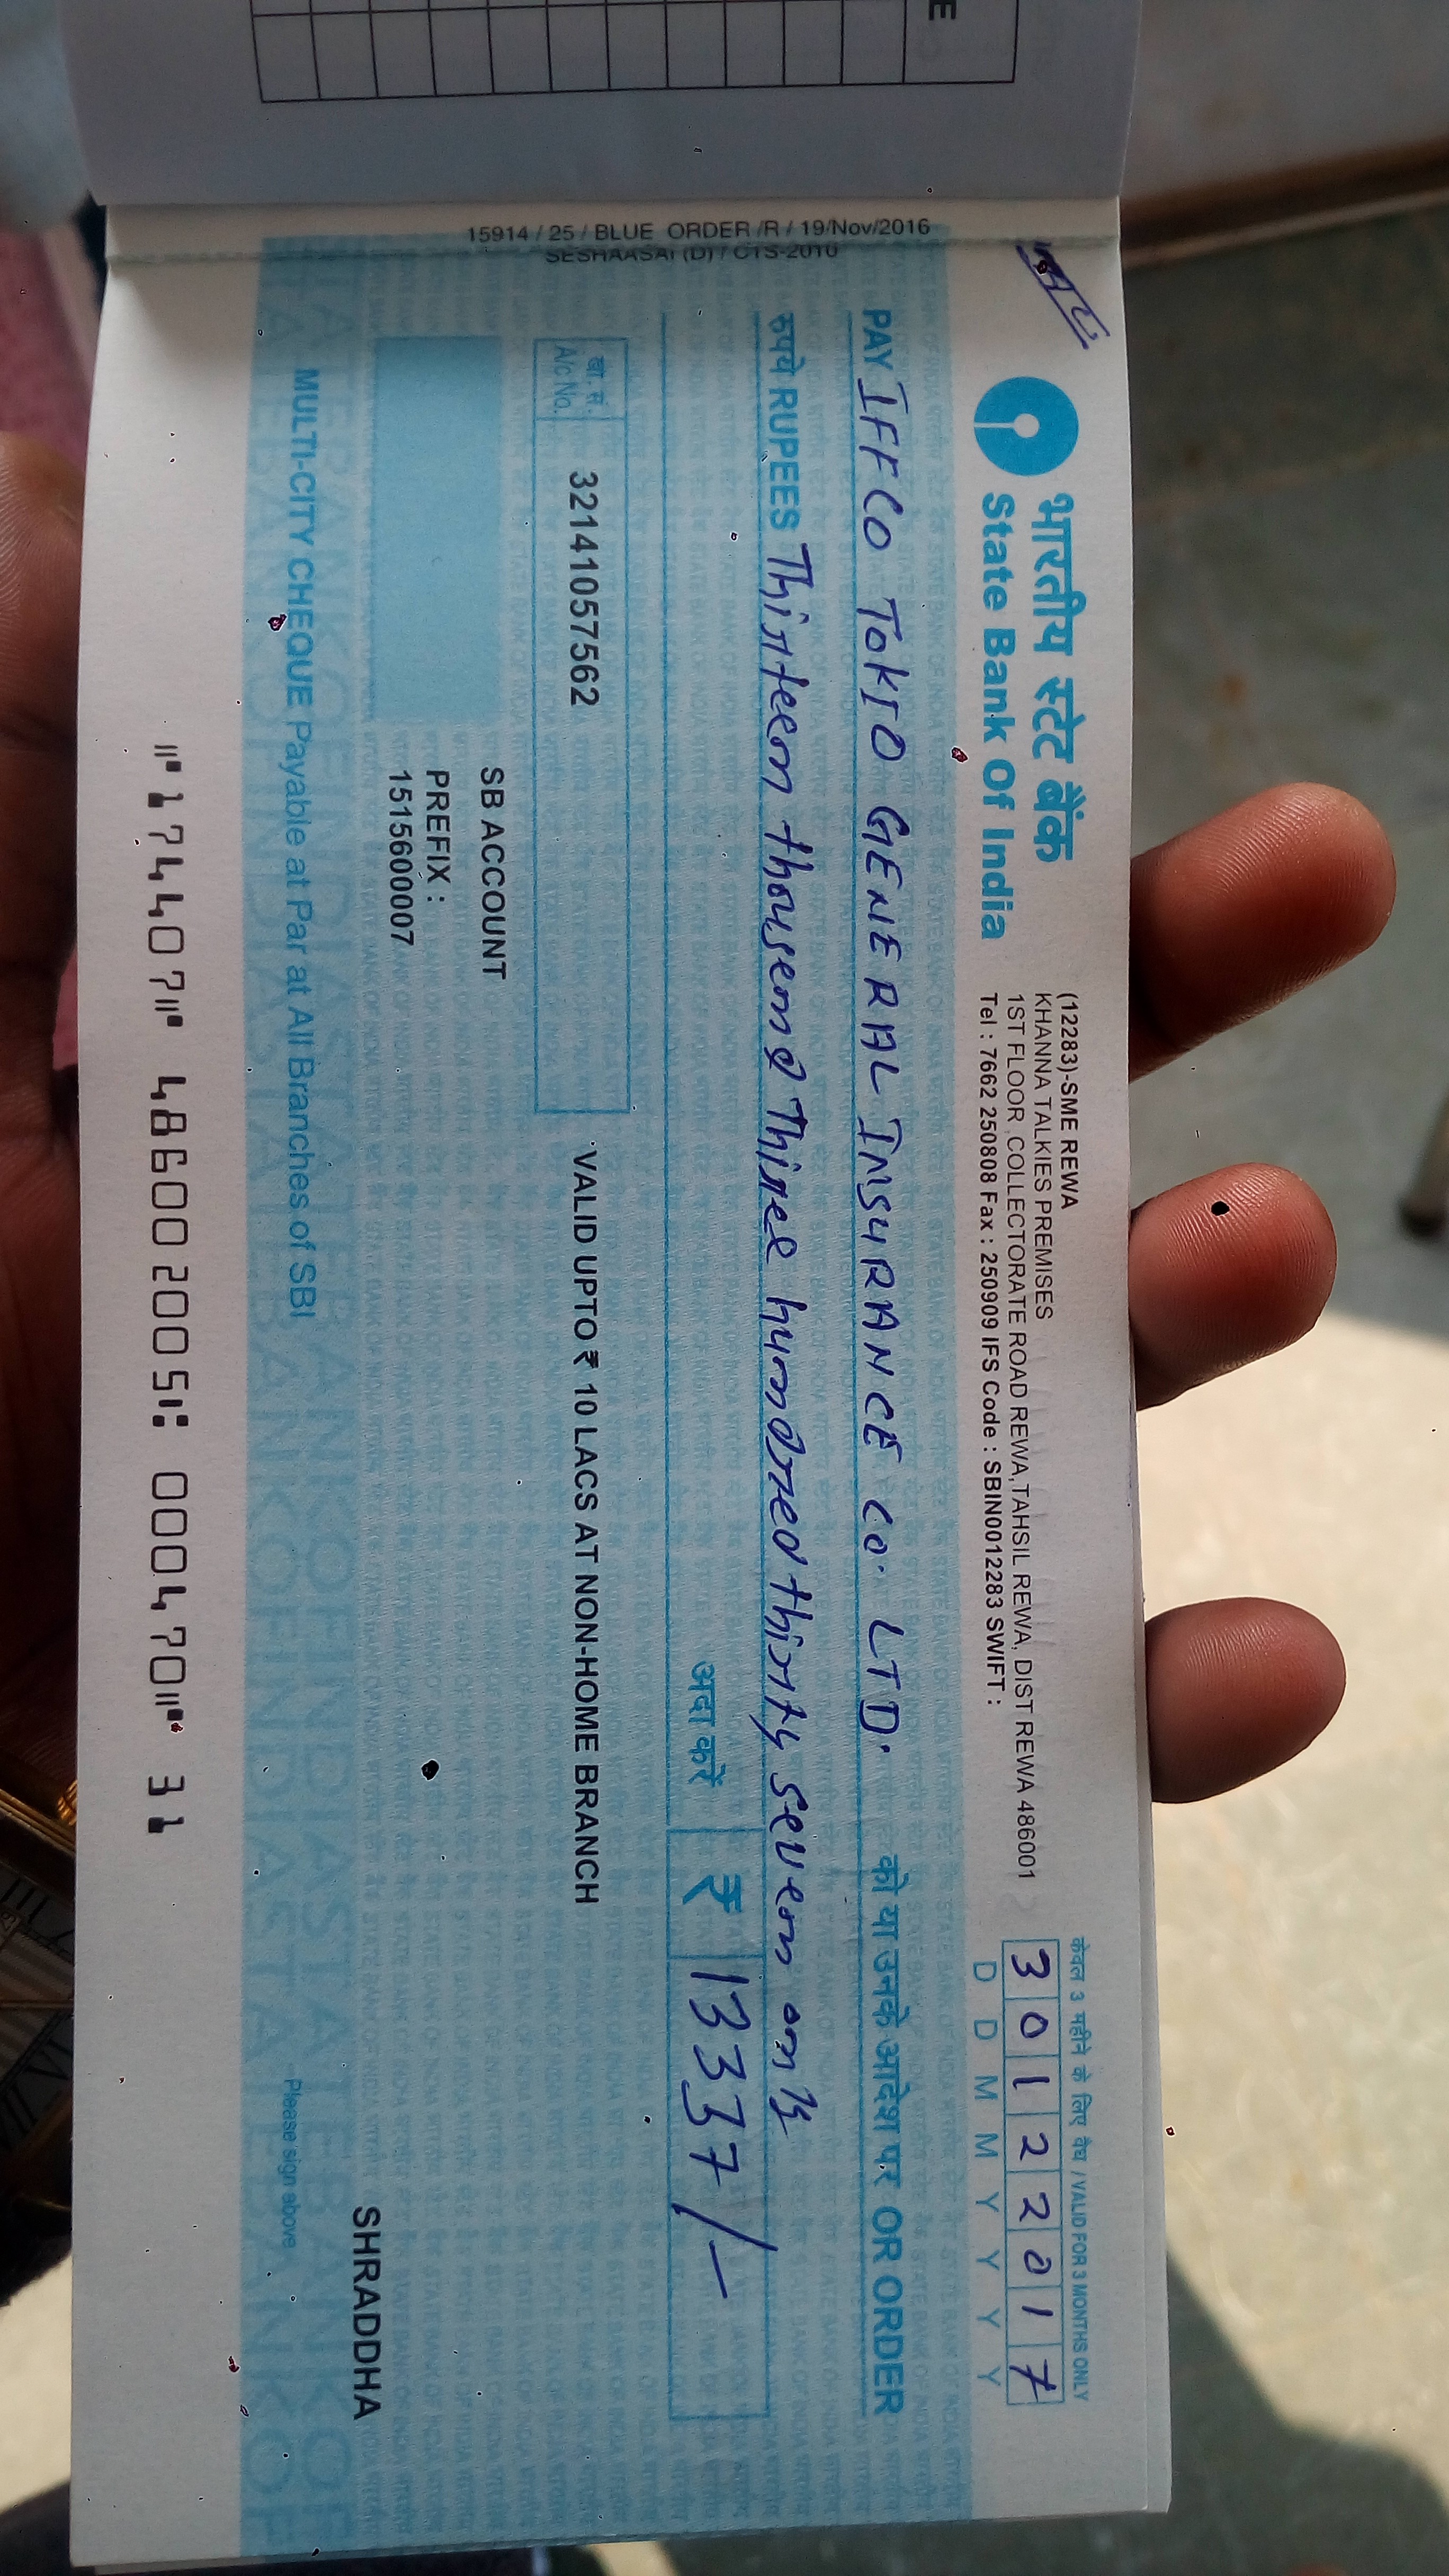 E
15914 / 25 / BLUE ORDER /R / 19/Nov/2016
SESHAASAI (D) / CTS-2010
भारतीय स्टेट बैंक
State Bank Of India
(12283)-SME REWA
KHANNA TALKIES PREMISES
1ST FLOOR ,COLLECTORATE ROAD REWA,TAHSIL REWA, DIST REWA 486001
Tel : 7662 250808 Fax : 250909 IFS Code : SBIN0012283 SWIFT :
केवल 3 महीने के लिए वैध / VALID FOR 3 MONTHS ONLY
30122017
D D M M Y Y Y Y
PAY IFFCO TOKIO GENERAL INSURANCE CO. LTD. को या उनके आदेश पर OR ORDER
रुपये RUPEES Thirteen thousend Three hundred thirty seven only
अदा करें ₹ 13337/-
खा. सं.
A/c No.
32141057562
VALID UPTO ₹ 10 LACS AT NON-HOME BRANCH
SB ACCOUNT
PREFIX :
151560007
SHRADDHA
MULTI-CITY CHEQUE Payable at Par at All Branches of SBI
Please sign above
⑈174407⑈ 486002005⑆ 000470⑈ 31